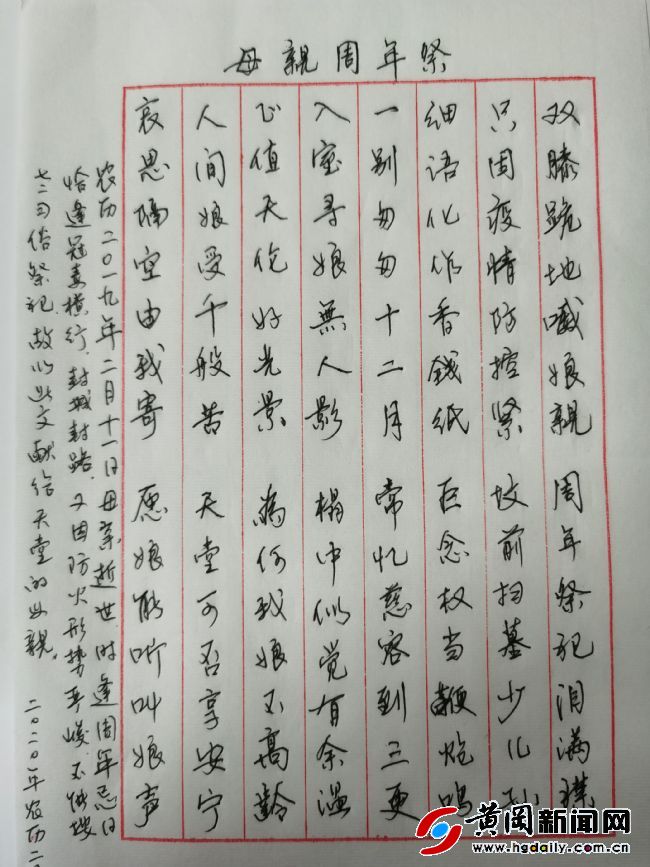 母親周年祭
双膝跪地喊娘親 周年祭祀泪满襟
只因疫情防控紧 坟前扫墓少儿孙
细语化作香錢纸 巨念权当鞭炮鸣
一别匆匆十二月 常忆慈容到三更
入室寻娘無人影 榻中似觉有余温
正值天伦好光景 為何我娘不高齡
人间娘受千般苦 天堂可否享安宁
哀思隔空由我寄 愿娘能听叫娘声
农历二〇一九年二月十一日母亲逝世,时逢周年忌日
恰逢冠毒横行,封城封路,又因防火形势严峻,不
习俗祭祀,故以此文献给天堂的母親。 二〇二〇年农历二
黄冈新闻网
www.hgdaily.com.cn